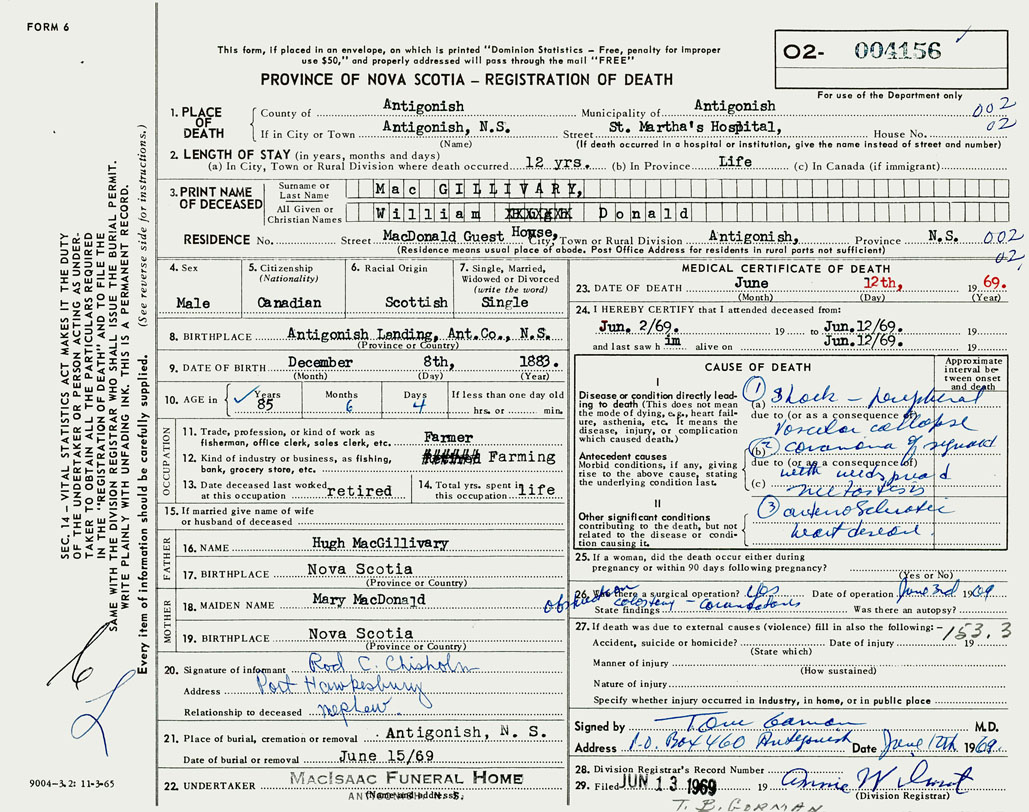 FORM 6
This form, if placed in an envelope, on which is printed "Dominion Statistics – Free, penalty for improper
use $50," and properly addressed will pass through the mail "FREE"
PROVINCE OF NOVA SCOTIA – REGISTRATION OF DEATH
02- 004156
For use of the Department only
1. PLACE OF DEATH
County of Antigonish Municipality of Antigonish 002
If in City or Town Antigonish, N.S. Street St. Martha's Hospital, House No. 02
(Name) (If death occurred in a hospital or institution, give the name instead of street and number)
2. LENGTH OF STAY (in years, months and days)
(a) In City, Town or Rural Division where death occurred 12 yrs. (b) In Province Life (c) In Canada (if immigrant)
3. PRINT NAME OF DECEASED
Surname or Last Name Mac GILLIVARY,
All Given or Christian Names William Donald
RESIDENCE No. Street MacDonald Guest House, City, Town or Rural Division Antigonish, Province N.S. 002
(Residence means usual place of abode. Post Office Address for residents in rural parts not sufficient) 02
4. Sex Male
5. Citizenship (Nationality) Canadian
6. Racial Origin Scottish
7. Single, Married, Widowed or Divorced (write the word) Single
8. BIRTHPLACE Antigonish Landing, Ant.Co., N.S.
(Province or Country)
9. DATE OF BIRTH December 8th, 1883.
(Month) (Day) (Year)
10. AGE in Years 85 Months 6 Days 4 If less than one day old hrs. or min.
OCCUPATION
11. Trade, profession, or kind of work as fisherman, office clerk, sales clerk, etc. Farmer
12. Kind of industry or business, as fishing, bank, grocery store, etc. Farming
13. Date deceased last worked at this occupation retired
14. Total yrs. spent in this occupation life
15. If married give name of wife or husband of deceased
FATHER
16. NAME Hugh MacGillivary
17. BIRTHPLACE Nova Scotia
(Province or Country)
MOTHER
18. MAIDEN NAME Mary MacDonald
19. BIRTHPLACE Nova Scotia
(Province or Country)
20. Signature of informant Rod C. Chisholm
Address Port Hawkesbury
Relationship to deceased nephew.
21. Place of burial, cremation or removal Antigonish, N. S.
Date of burial or removal June 15/69
22. UNDERTAKER MACISAAC FUNERAL HOME
(Name and address)
MEDICAL CERTIFICATE OF DEATH
23. DATE OF DEATH June 12th, 1969.
(Month) (Day) (Year)
24. I HEREBY CERTIFY that I attended deceased from:
Jun. 2/69. 19 to Jun.12/69. 19
and last saw him alive on Jun.12/69. 19
CAUSE OF DEATH
Approximate interval between onset and death
I
Disease or condition directly leading to death (This does not mean the mode of dying, e.g., heart failure, asthenia, etc. It means the disease, injury, or complication which caused death.)
(a) 1 Shock – peripheral
due to (or as a consequence of)
vascular collapse
Antecedent causes
Morbid conditions, if any, giving rise to the above cause, stating the underlying condition last.
(b) 2 carcinoma of sigmoid
due to (or as a consequence of)
with widespread
(c) metastasis
II
Other significant conditions contributing to the death, but not related to the disease or condition causing it.
3 arteriosclerotic
heart disease
25. If a woman, did the death occur either during pregnancy or within 90 days following pregnancy?
(Yes or No)
26. Was there a surgical operation? yes Date of operation June 3rd 1969
State findings Was there an autopsy?
27. If death was due to external causes (violence) fill in also the following: – 153.3
Accident, suicide or homicide? Date of injury 19
(State which)
Manner of injury
(How sustained)
Nature of injury
Specify whether injury occurred in industry, in home, or in public place
Signed by M.D.
Address P.O. Box 460 Antigonish Date June 12th 1969.
28. Division Registrar's Record Number
29. Filed JUN 13 1969 19
(Division Registrar)
T. B. GORMAN
SEC. 14 – VITAL STATISTICS ACT MAKES IT THE DUTY
OF THE UNDERTAKER OR PERSON ACTING AS UNDER-
TAKER TO OBTAIN ALL THE PARTICULARS REQUIRED
IN THE "REGISTRATION OF DEATH" AND TO FILE THE
SAME WITH THE DIVISION REGISTRAR WHO SHALL ISSUE THE BURIAL PERMIT.
WRITE PLAINLY WITH UNFADING INK. THIS IS A PERMANENT RECORD.
Every item of information should be carefully supplied. (See reverse side for instructions.)
9004–3.2: 11-3-65